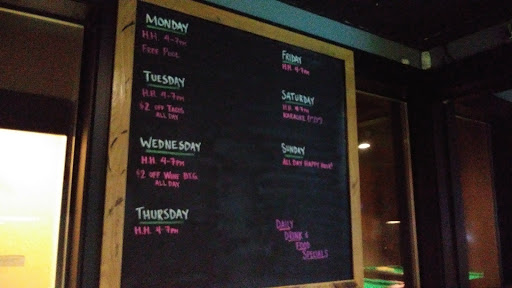 MONDAY
H.H. 4-7pm
FREE POOL
TUESDAY
H.H. 4-7pm
$2 OFF TACOS
ALL DAY
WEDNESDAY
H.H. 4-7pm
$2 OFF WINE
ALL DAY
THURSDAY
H.H. 4-7pm
FRIDAY
H.H. 4-7pm
SATURDAY
H.H. 4-7pm
KARAOKE
SUNDAY
ALL DAY HAPPY HOUR!
DAILY
DRINK &
FOOD
SPECIALS